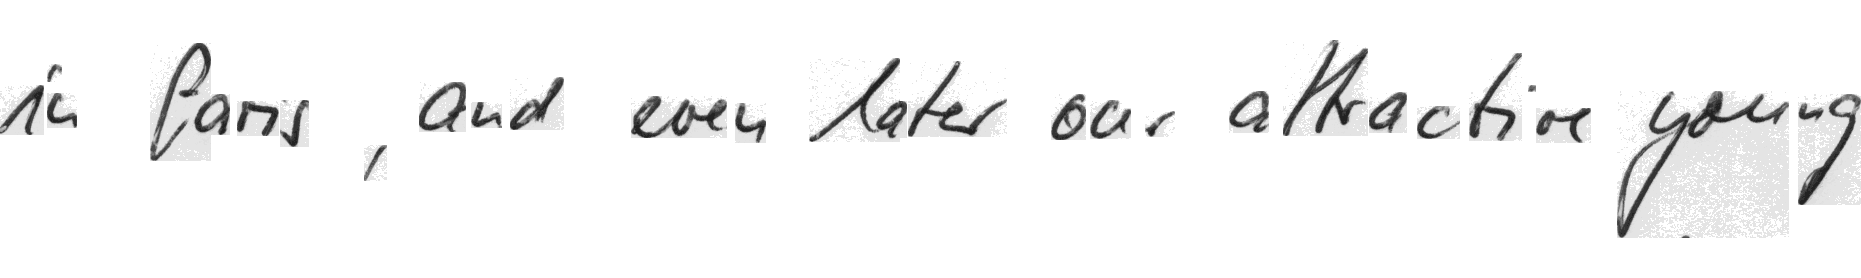 in Paris, and even later our attractive young